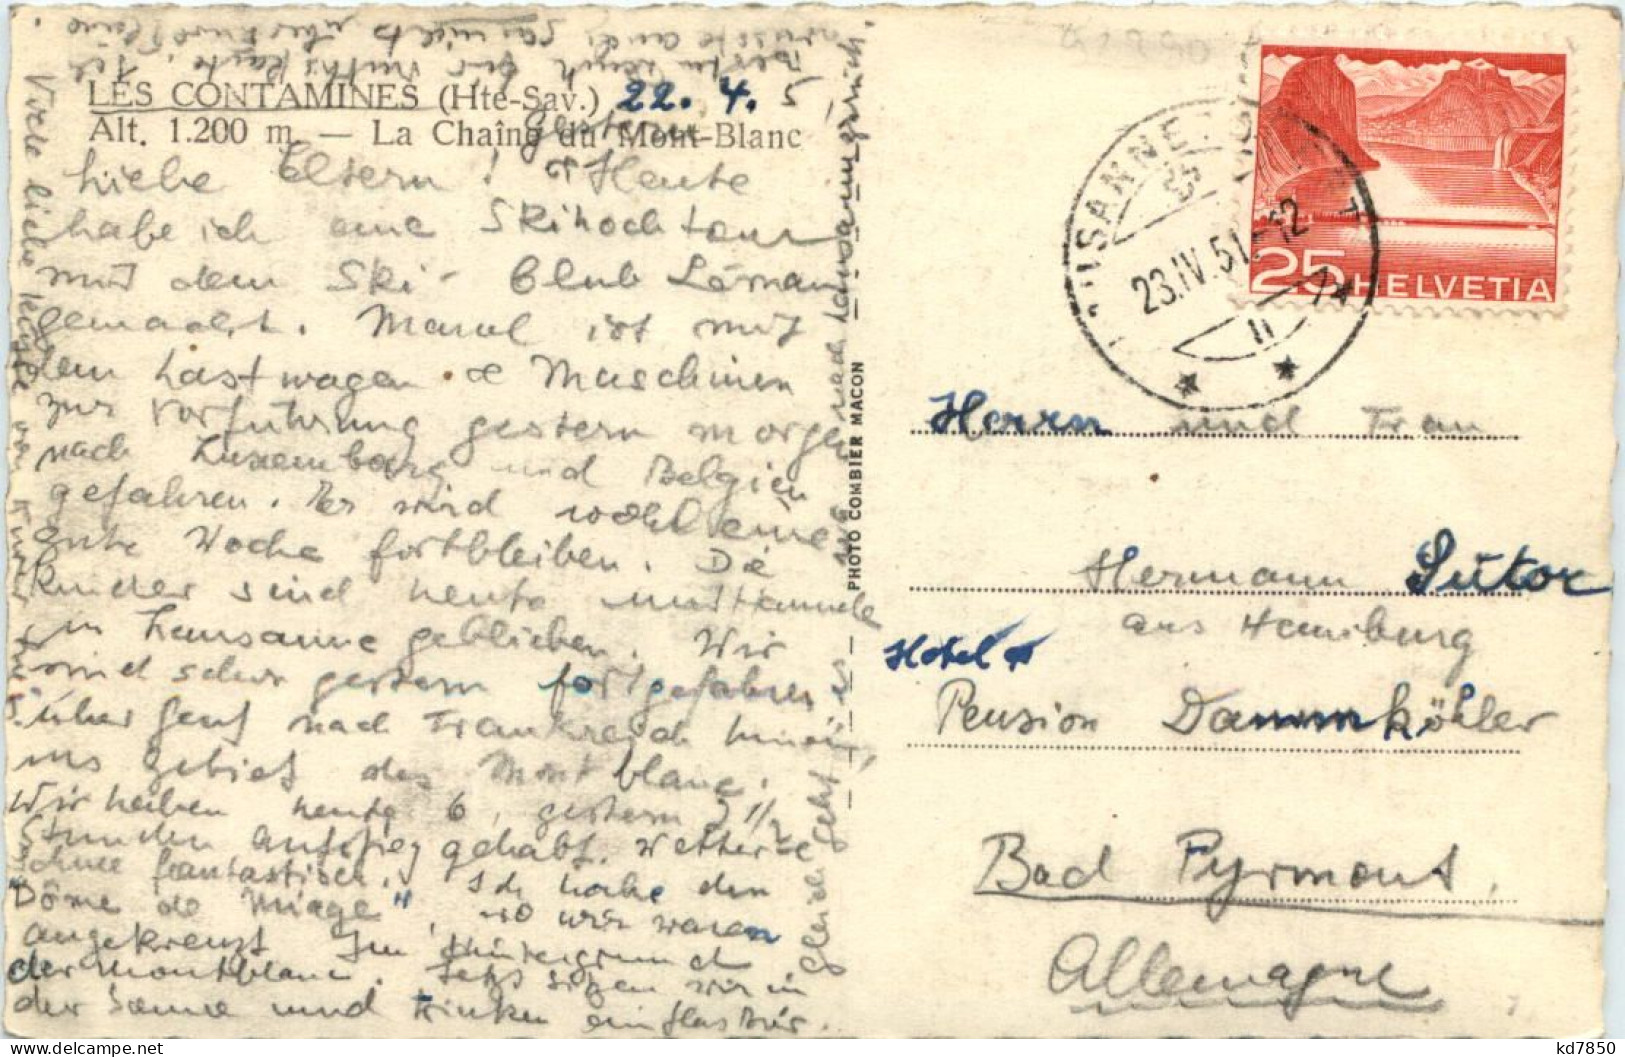 LES CONTAMINES (Hte-Sav.) 22. 4. 5
Alt. 1.200 m. — La Chaîne du Mont-Blanc
Liebe Eltern! Heute
habe ich eine Skihochtour
mit dem Ski-Club Léman
gemacht. Marcel ist mit
dem Lastwagen & Maschinen
zur Vorführung gestern morgen
nach Luxemburg und Belgien
gefahren. Er wird wohl eine
gute Woche fortbleiben. Die
Kinder sind heute mit
in Lausanne geblieben. Wir
sind schon gestern fortgefahren
über Genf nach Frankreich hinein,
ins Gebiet des Mont blanc.
Wir haben heute 6, gestern 3 1/2
Stunden Aufstieg gehabt. Wetter &
Schnee fantastisch. Ich habe den
"Dôme de Miage", wo wir waren
angekreuzt. Im Hintergrund
der Montblanc. Jetzt sitzen wir in
der Sonne und trinken ein Glas Bier.
Gleich geht es
nach Lausanne zurück.
Viele liebe
PHOTO COMBIER MACON
25 HELVETIA
23.IV.51.-12
Herrn und Frau
Hermann Sutor
aus Hamburg
Hotel &
Pension Dammköhler
Bad Pyrmont.
Allemagne
kd7850